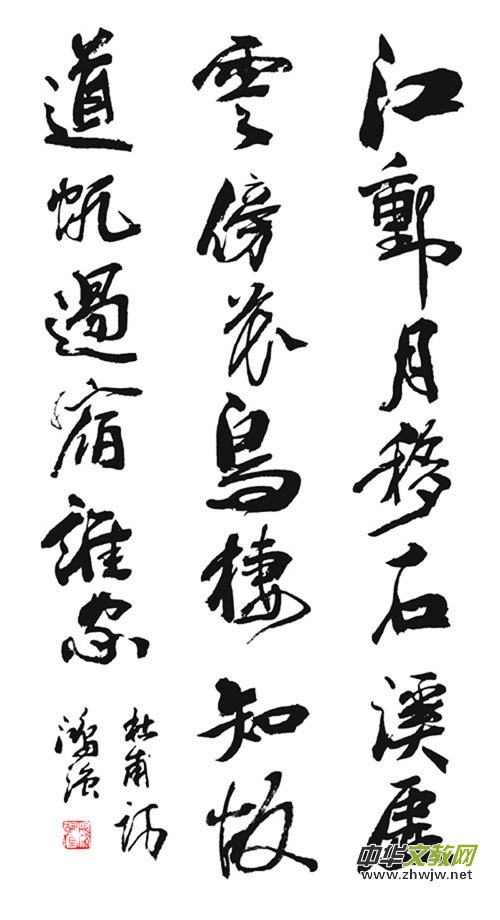 江動月移石溪虛
雲傍花鳥棲知故
道帆過宿誰家
杜甫詩
鴻濱
中华文教网
www.zhwjw.net